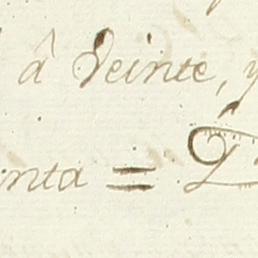 â veinte, y
nta =